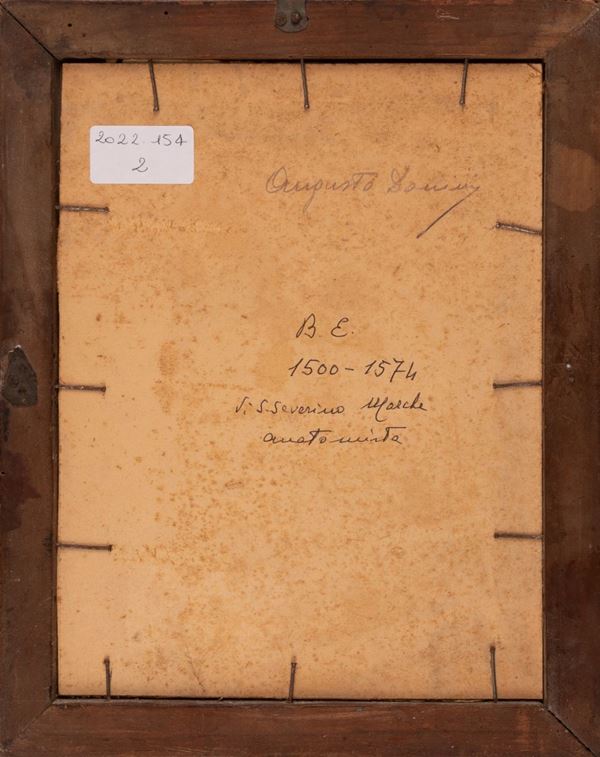 2022.154
2
Augusto
B. E.
1500-1574
V. S. Severino Marche
anatomista